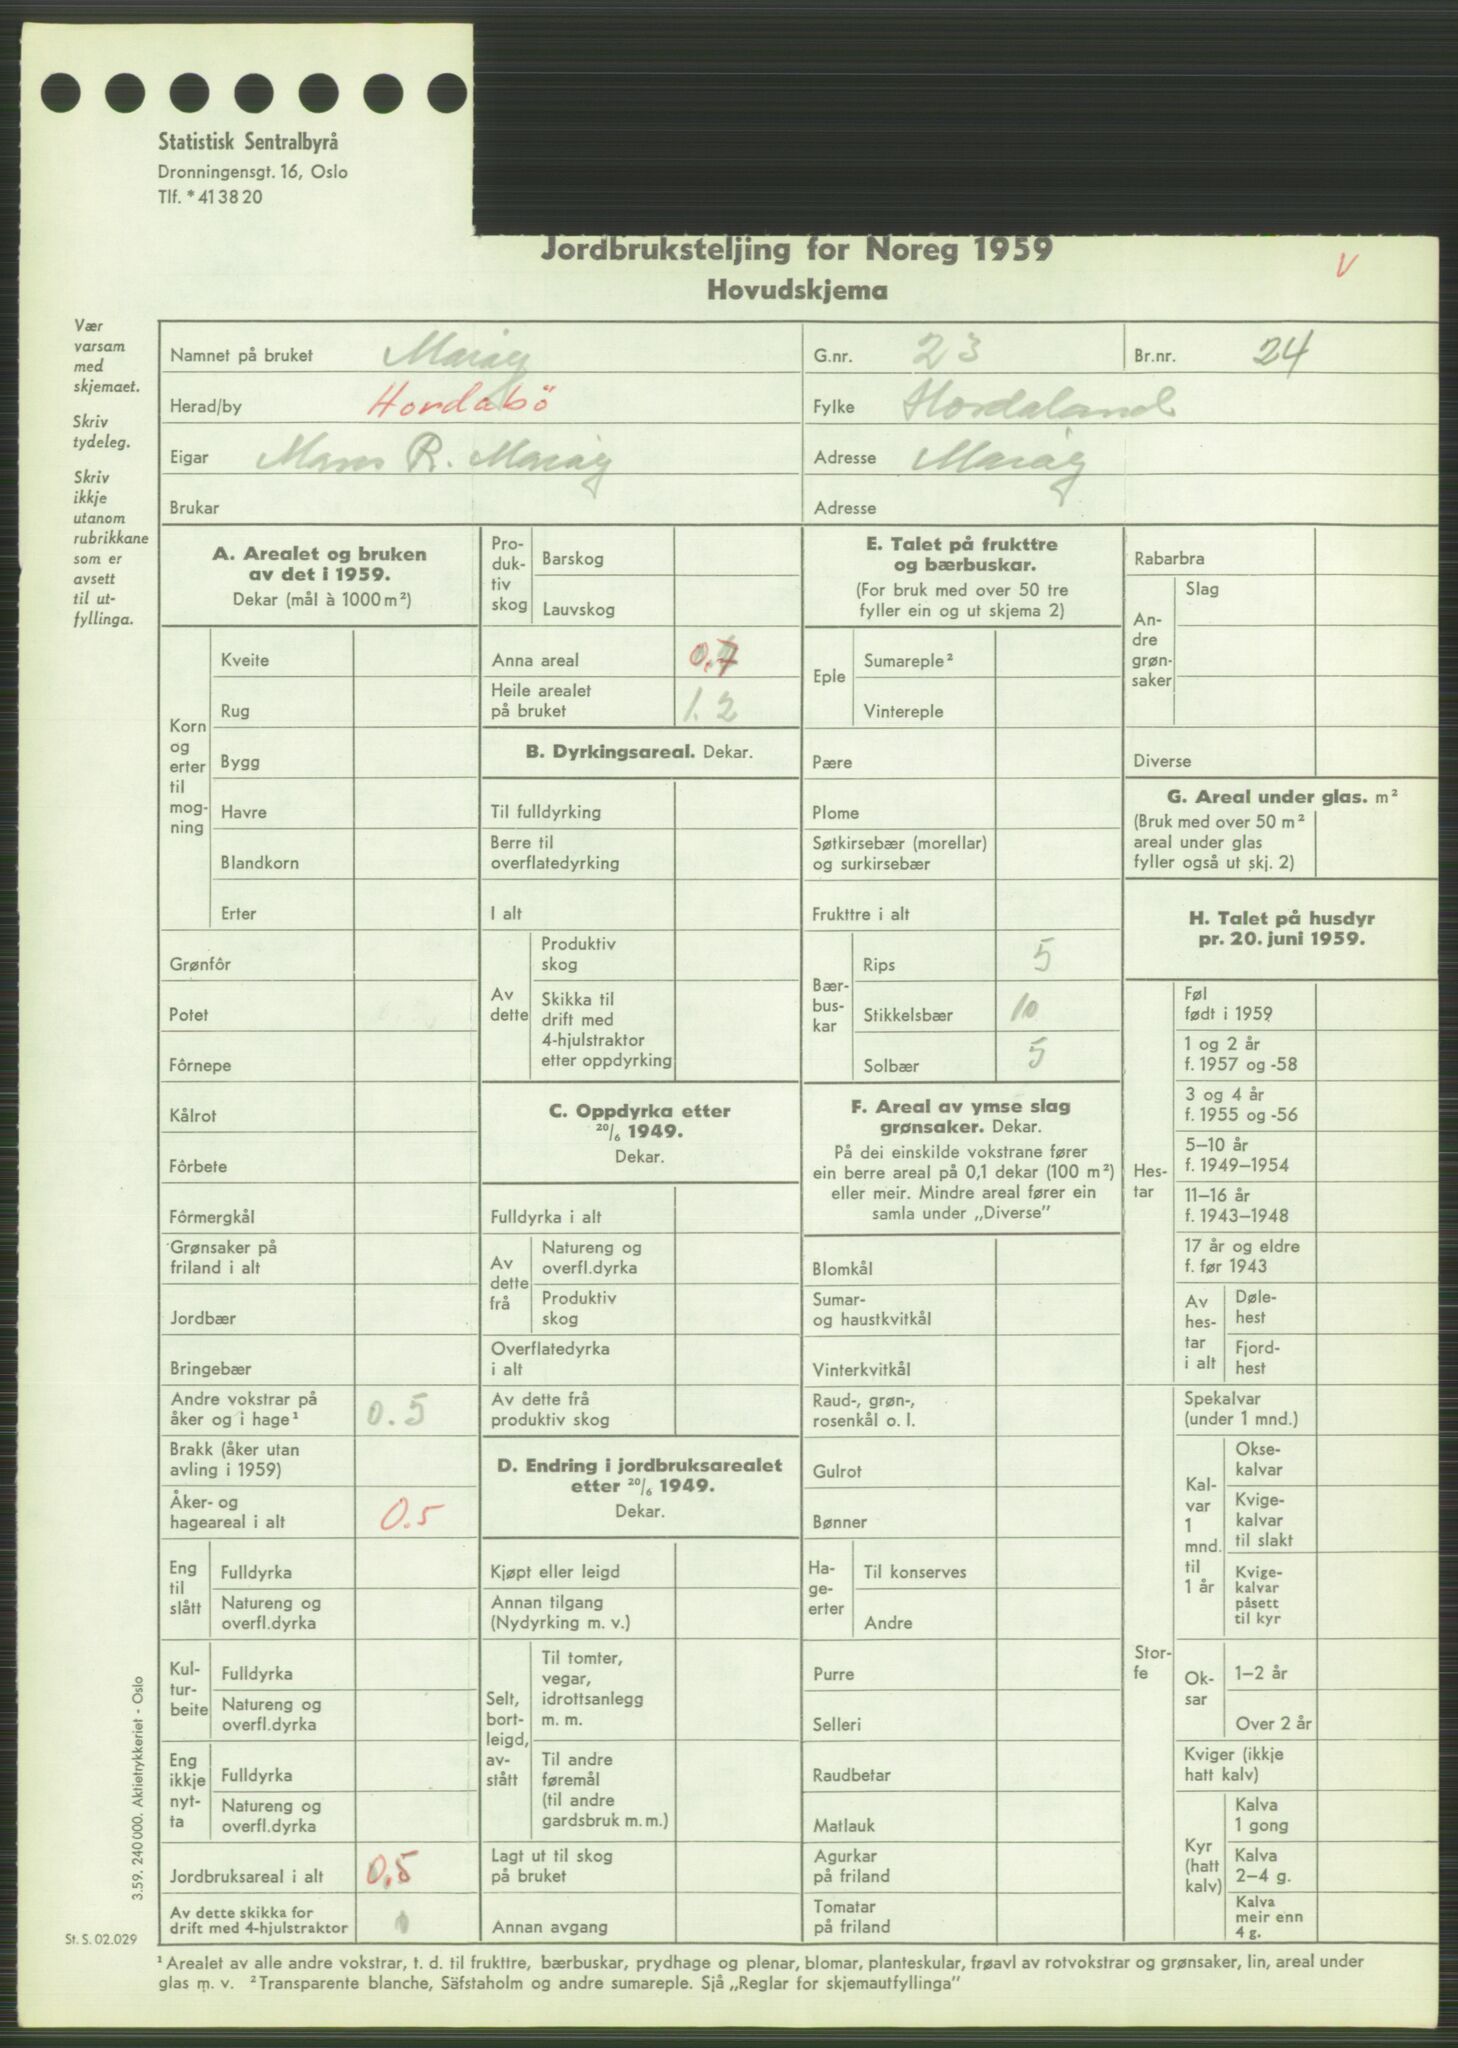 Statistisk Sentralbyrå
Dronningensgt. 16, Oslo
Tlf. * 41 38 20
Jordbruksteljing for Noreg 1959
Hovudskjema
V
Vær
varsam
med
skjemaet.
Skriv
tydeleg.
Skriv
ikkje
utanom
rubrikkane
som er
avsett
til ut-
fyllinga.
Namnet på bruket Marøy G.nr. 23 Br.nr. 24
Herad/by Hordabö Fylke Hordaland
Eigar Mons R. Marøy Adresse Marøy
Brukar Adresse
A. Arealet og bruken
av det i 1959.
Dekar (mål à 1000 m²)
Korn
og
erter
til
mog-
ning
Kveite
Rug
Bygg
Havre
Blandkorn
Erter
Grønfôr
Potet
Fôrnepe
Kålrot
Fôrbete
Fôrmergkål
Grønsaker på
friland i alt
Jordbær
Bringebær
Andre vokstrar på
åker og i hage¹ 0.5
Brakk (åker utan
avling i 1959)
Åker- og
hageareal i alt 0.5
Eng
til
slått
Fulldyrka
Natureng og
overfl.dyrka
Kul-
tur-
beite
Fulldyrka
Natureng og
overfl.dyrka
Eng
ikkje
nyt-
ta
Fulldyrka
Natureng og
overfl.dyrka
Jordbruksareal i alt 0,5
Av dette skikka for
drift med 4-hjulstraktor
Pro-
duk-
tiv
skog
Barskog
Lauvskog
Anna areal 0,7
Heile arealet
på bruket 1.2
B. Dyrkingsareal. Dekar.
Til fulldyrking
Berre til
overflatedyrking
I alt
Av
dette
Produktiv
skog
Skikka til
drift med
4-hjulstraktor
etter oppdyrking
C. Oppdyrka etter
20/6 1949.
Dekar.
Fulldyrka i alt
Av
dette
frå
Natureng og
overfl.dyrka
Produktiv
skog
Overflatedyrka
i alt
Av dette frå
produktiv skog
D. Endring i jordbruksarealet
etter 20/6 1949.
Dekar.
Kjøpt eller leigd
Annan tilgang
(Nydyrking m. v.)
Selt,
bort-
leigd,
av-
stått
Til tomter,
vegar,
idrottsanlegg
m. m.
Til andre
føremål
(til andre
gardsbruk m. m.)
Lagt ut til skog
på bruket
Annan avgang
E. Talet på frukttre
og bærbuskar.
(For bruk med over 50 tre
fyller ein og ut skjema 2)
Eple
Sumareple²
Vintereple
Pære
Plome
Søtkirsebær (morellar)
og surkirsebær
Frukttre i alt
Bær-
bus-
kar
Rips 5
Stikkelsbær 10
Solbær 5
F. Areal av ymse slag
grønsaker. Dekar.
På dei einskilde vokstrane fører
ein berre areal på 0,1 dekar (100 m²)
eller meir. Mindre areal fører ein
samla under „Diverse”
Blomkål
Sumar-
og haustkvitkål
Vinterkvitkål
Raud-, grøn-,
rosenkål o. l.
Gulrot
Bønner
Ha-
ge-
erter
Til konserves
Andre
Purre
Selleri
Raudbetar
Matlauk
Agurkar
på friland
Tomatar
på friland
Rabarbra
An-
dre
grøn-
saker
Slag
Diverse
G. Areal under glas. m²
(Bruk med over 50 m²
areal under glas
fyller også ut skj. 2)
H. Talet på husdyr
pr. 20. juni 1959.
Hes-
tar
Føl
født i 1959
1 og 2 år
f. 1957 og -58
3 og 4 år
f. 1955 og -56
5–10 år
f. 1949–1954
11–16 år
f. 1943–1948
17 år og eldre
f. før 1943
Av
hes-
tar
i alt
Døle-
hest
Fjord-
hest
Stor-
fe
Spekalvar
(under 1 mnd.)
Kal-
var
1
mnd.
til
1 år
Okse-
kalvar
Kvige-
kalvar
til slakt
Kvige-
kalvar
påsett
til kyr
Ok-
sar
1–2 år
Over 2 år
Kviger (ikkje
hatt kalv)
Kyr
(hatt
kalv)
Kalva
1 gong
Kalva
2–4 g.
Kalva
meir enn
4 g.
3.59. 240 000. Aktietrykkeriet - Oslo
St. S. 02.029
¹ Arealet av alle andre vokstrar, t. d. til frukttre, bærbuskar, prydhage og plenar, blomar, planteskular, frøavl av rotvokstrar og grønsaker, lin, areal under
glas m. v. ² Transparente blanche, Säfstaholm og andre sumareple. Sjå „Reglar for skjemautfyllinga”